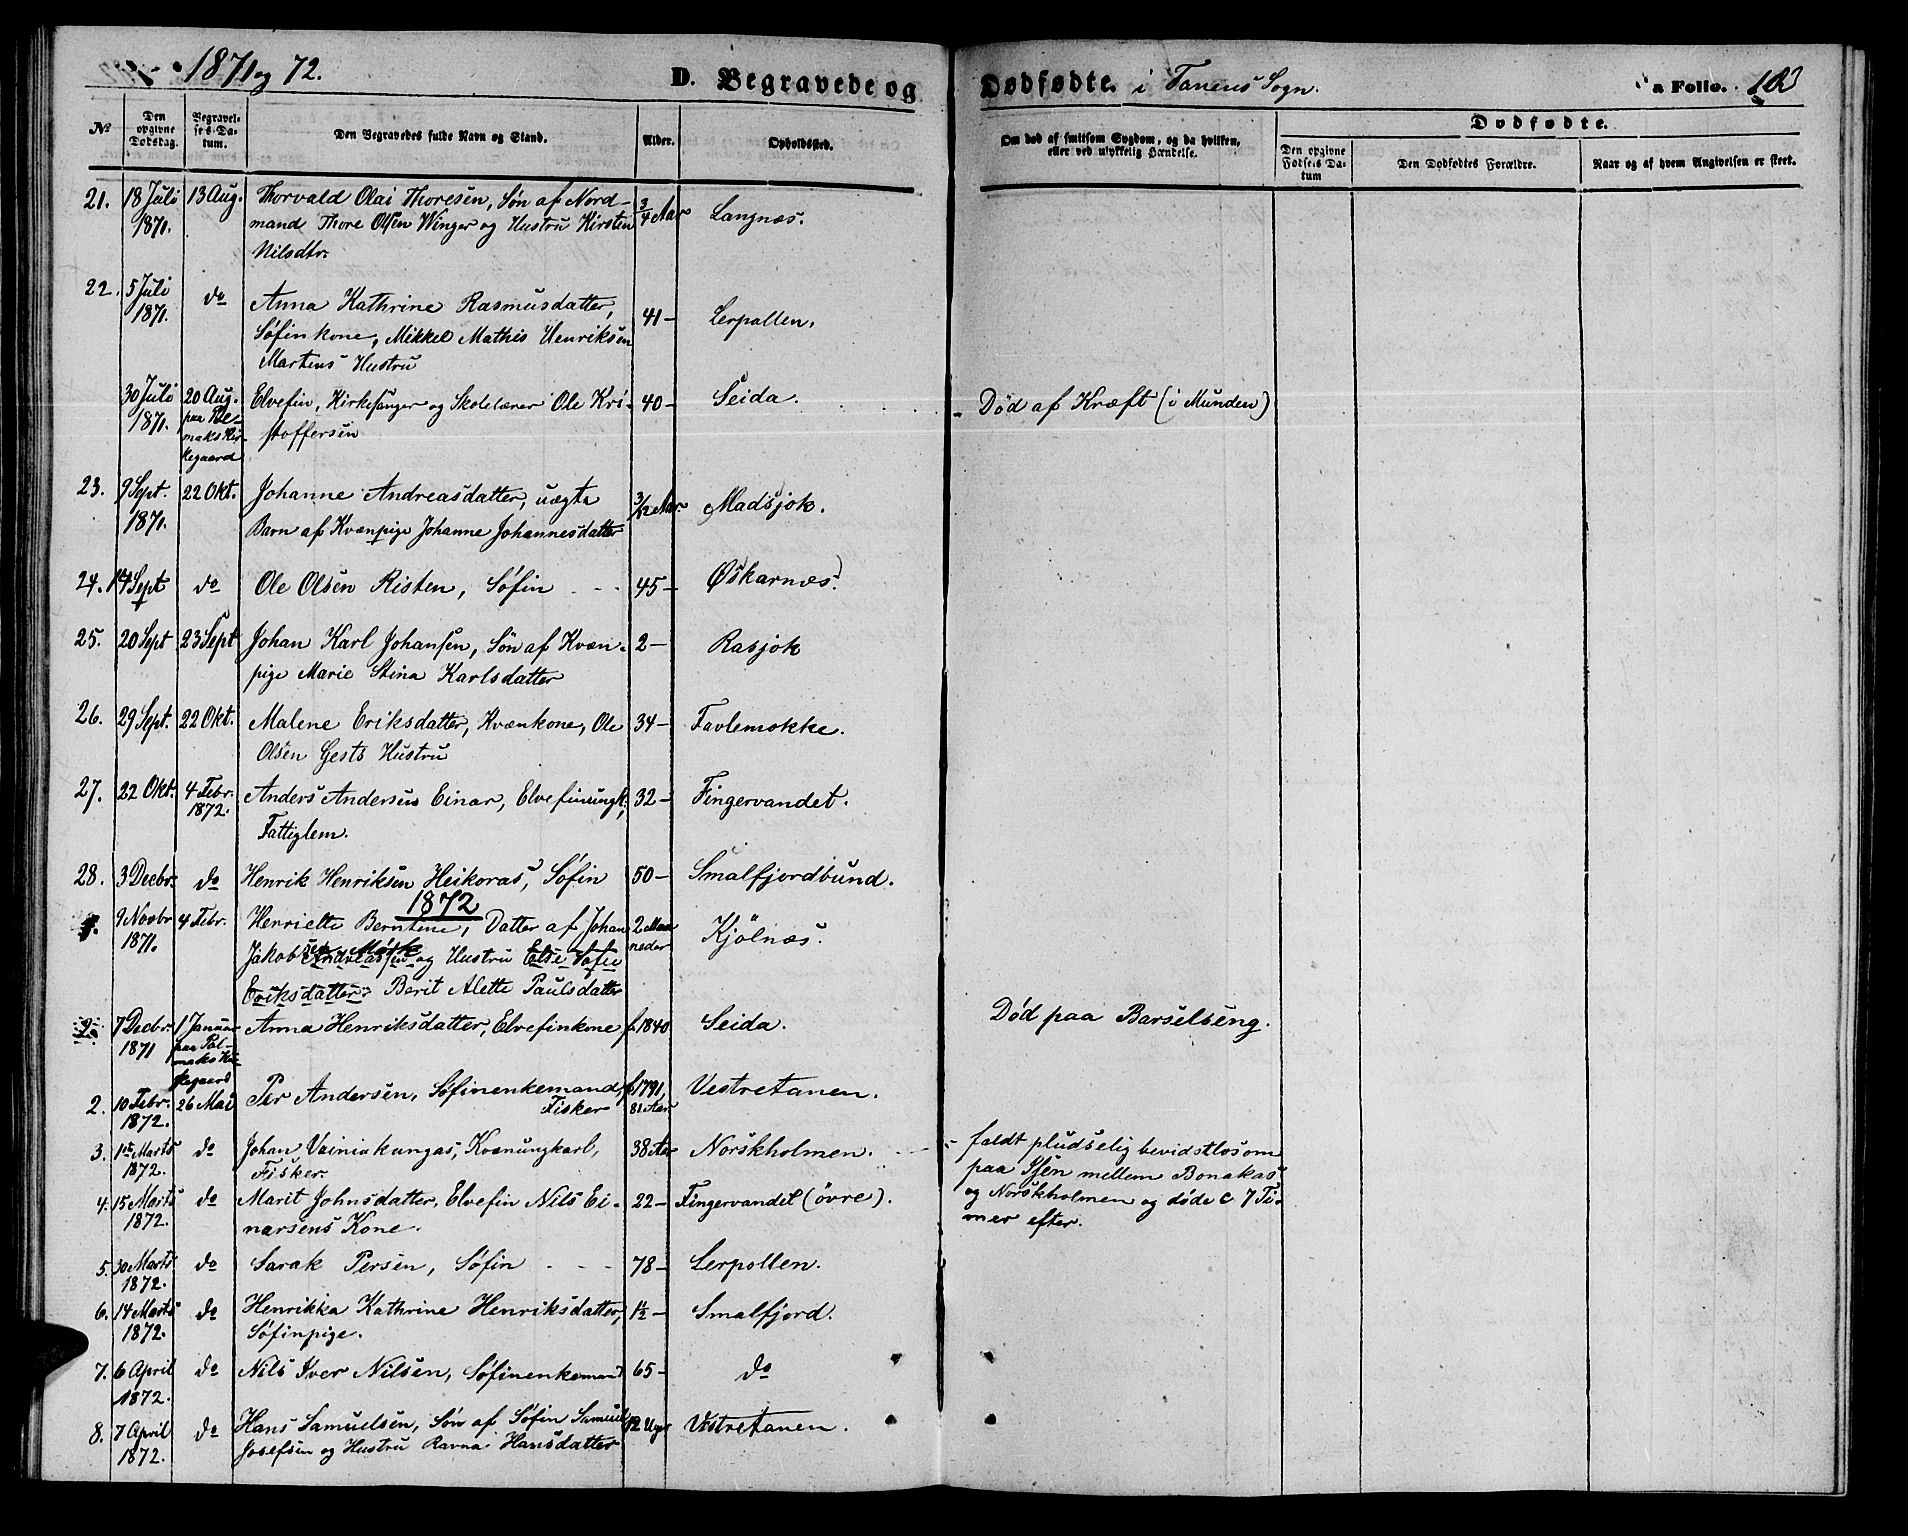 1871 og 72.
D. Begravede og Dødfødte. i Tanens Sogn.
a Folio. 103
No
Den opgivne Dødsdag.
Begravelses-Datum.
Den Begravedes fulde Navn og Stand.
Alder.
Opholdssted.
Om død af smitsom Sygdom, og da hvilken, eller ved ulykkelig Hændelse.
Dødfødte.
Den opgivne Fødsels Datum
Den Dødfødtes Forældre.
Naar og af hvem Angivelsen er skeet.
21. 18 Juli 13 Aug. Thorvald Olai Thoresen, Søn af Nord- 3/4 Aar Langnæs.
1871. mand Thore Olsen Winger og Hustru Kirsten
Nilsdtr.
22. 5 Juli do Anna Kathrine Rasmusdatter, 41- Lerpollen.
1871. Søfinkone, Mikkel Mathis Henriksen
Martens Hustru
30 Juli 20 Aug. Elvefin, Kirkesanger og Skolelærer Ole Kri- 40- Seida. Død af Kræft (i Munden)
1871. paa Polmaks Kirkegaard stoffersen
23. 9 Sept. 22 Okt. Johanne Andreasdatter, uægte 3/12 Aar. Madsjok.
1871. Barn af Kvænpige Johanne Johannesdatter
24. 14 Sept do Ole Olsen Risten, Søfin 45- Øskarnæs.
25. 20 Sept 23 Sept Johan Karl Johansen, Søn af Kvæn- 2- Rasjok
pige Marie Stina Karlsdatter
26. 29 Sept. 22 Okt. Malene Eriksdatter, Kvænkone, Ole 34- Favlemokke.
Olsen Gests Hustru
27. 22 Okt. 4 Febr. 1872. Anders Andersen Einar, Elvefinungk., 32- Fingervandet.
Fattiglem.
28. 3 Decbr. do Henrik Henriksen Heikoras, Søfin 50- Smalfjordbund.
1872
1. 9 Novbr 4 Febr. Henriette Berntine, Datter af Johan 2 Maaneder Kjølnæs.
1871. Jakobsen Mørk og Hustru Else Sofie
Eriksdatter: Berit Alette Paulsdatter
2. 7 Decbr. 1 Januar Anna Henriksdatter, Elvefinkone f. 1840 Seida. Død paa Barselseng.
1871 paa Polmaks Kirkegaard
2. 10 Febr. 26 Mai Per Andersen, Søfinenkemand, f. 1791, Vestretanen.
1872. Fisker 81 Aar
3. 1ste Marts do Johan Vainiokungas, Kvænungkarl, 38 Aar Norskholmen. faldt pludselig bevidstløs om
1872. Fisker paa Isen mellem Bonakas
4. 15 Marts do Marit Johnsdatter, Elvefin Nils Ei- 22- Fingervandet (øvre). og Norskholmen og døde c 7 Ti-
1872. narsens Kone. mer efter.
5. 30 Marts do Sarak Persen, Søfin 78- Lerpollen.
1872.
6. 14 Marts do Henrikka Kathrine Henriksdatter, 1½- Smalfjord.
1872. Søfinpige.
7. 6 April do Nils Iver Nilsen, Søfinenkemand 65- do
1872.
8. 7 April do Hans Samuelsen, Søn af Søfin Samuel 12 Uger Vestretanen.
1872. Josefsen og Hustru Ravna Hansdatter